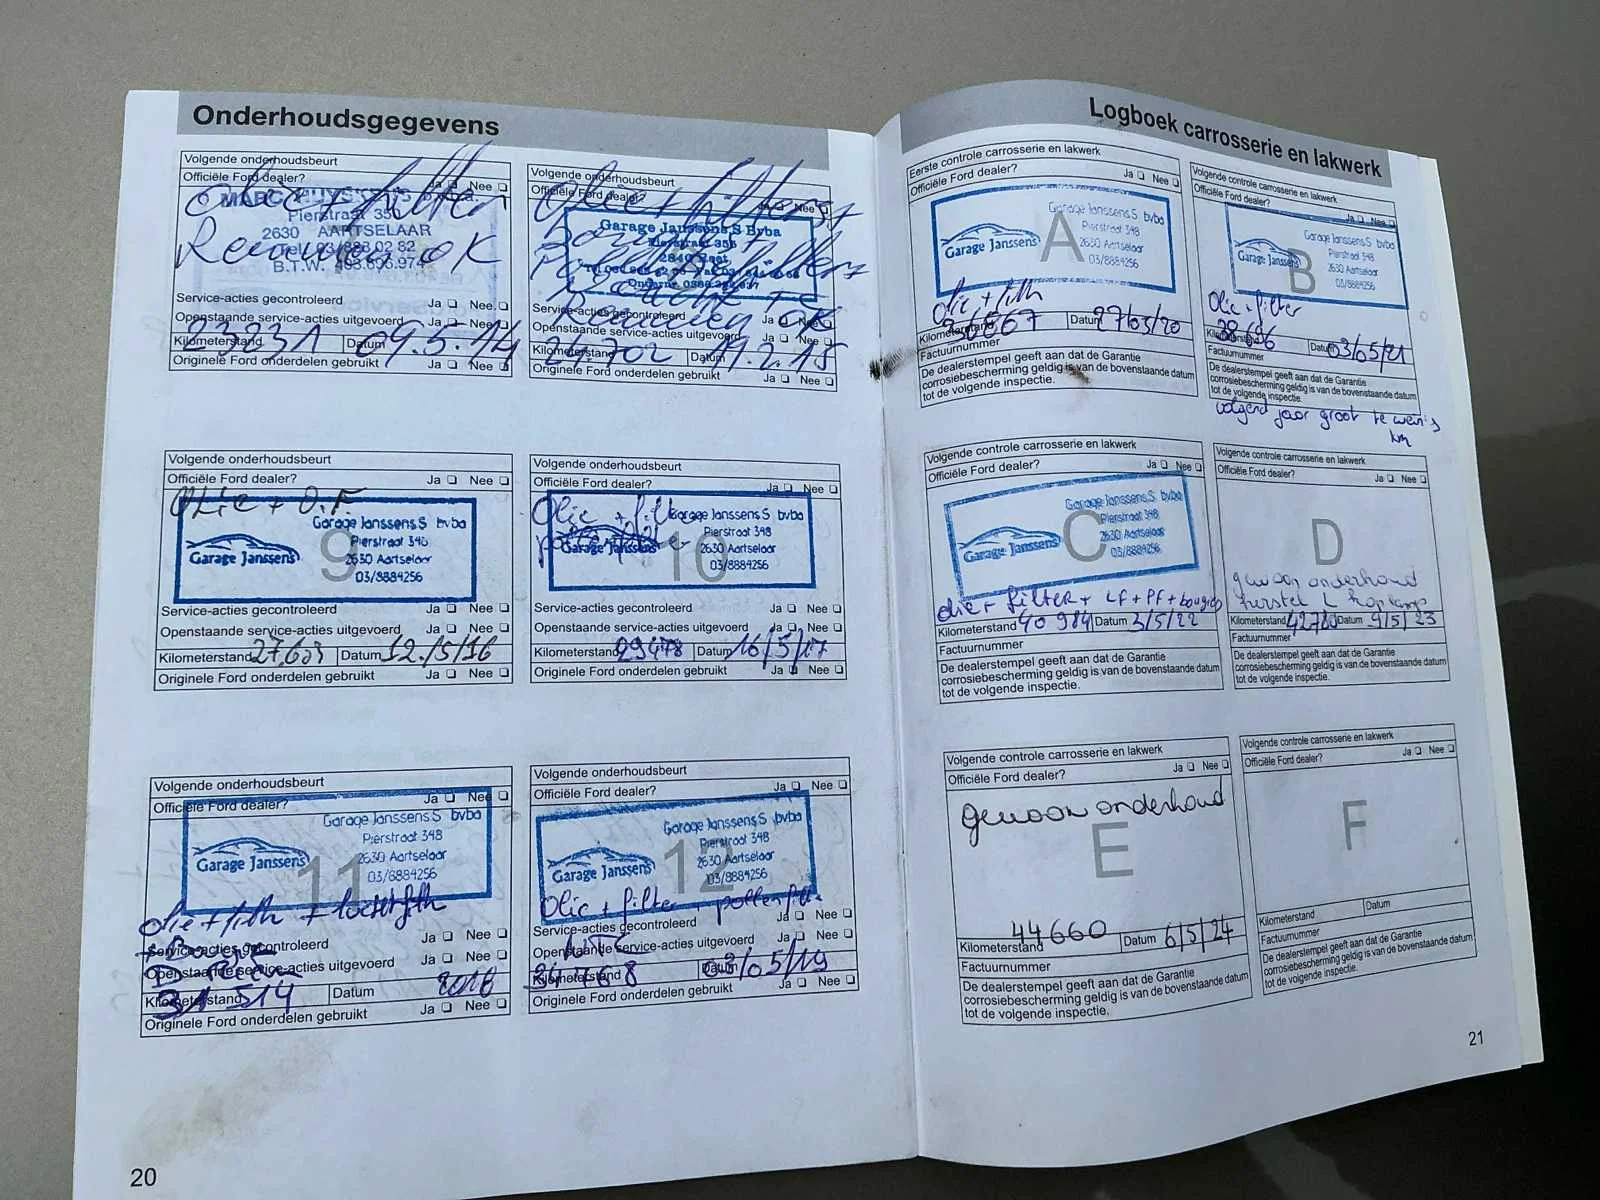 Onderhoudsgegevens
Volgende onderhoudsbeurt
Officiële Ford dealer? Ja Nee
Olie + filter
MARC
Pierstraat 35
2630 AARTSELAAR
Tel. 03/888.02.82
Remmen OK
B.T.W.
Service-acties gecontroleerd Ja Nee
Openstaande service-acties uitgevoerd Ja Nee
Kilometerstand 23231 Datum 29.5.14
Originele Ford onderdelen gebruikt Ja Nee
Volgende onderhoudsbeurt
Officiële Ford dealer? Ja Nee
Olie + filters +
Garage Janssens S Bvba
Pierstraat 35
pollenfilters
Remmen OK
Service-acties gecontroleerd Ja Nee
Openstaande service-acties uitgevoerd Ja Nee
Kilometerstand 24.702 Datum 19.2.15
Originele Ford onderdelen gebruikt Ja Nee
Volgende onderhoudsbeurt
Officiële Ford dealer? Ja Nee
Olie + O.F.
Garage Janssens S bvba
Pierstraat 348
Garage Janssens 9 2630 Aartselaar
03/8884256
Service-acties gecontroleerd Ja Nee
Openstaande service-acties uitgevoerd Ja Nee
Kilometerstand Datum 12/5/16
Originele Ford onderdelen gebruikt Ja Nee
Volgende onderhoudsbeurt
Officiële Ford dealer? Ja Nee
Olie + filter
Garage Janssens S bvba
Pierstraat 348
Garage Janssens 10 2630 Aartselaar
03/8884256
Service-acties gecontroleerd Ja Nee
Openstaande service-acties uitgevoerd Ja Nee
Kilometerstand 29478 Datum 16/5/17
Originele Ford onderdelen gebruikt Ja Nee
Volgende onderhoudsbeurt
Officiële Ford dealer? Ja Nee
Garage Janssens S bvba
Pierstraat 348
Garage Janssens 11 2630 Aartselaar
03/8884256
olie + filth + luchtfilth
Service-acties gecontroleerd Ja Nee
Openstaande service-acties uitgevoerd Ja Nee
Kilometerstand 31514 Datum
Originele Ford onderdelen gebruikt Ja Nee
Volgende onderhoudsbeurt
Officiële Ford dealer? Ja Nee
Garage Janssens S bvba
Pierstraat 348
Garage Janssens 12 2630 Aartselaar
03/8884256
Olie + filter + pollenfilt.
Service-acties gecontroleerd Ja Nee
Openstaande service-acties uitgevoerd Ja Nee
Kilometerstand 34768 Datum 03/05/19
Originele Ford onderdelen gebruikt Ja Nee
20
Logboek carrosserie en lakwerk
Eerste controle carrosserie en lakwerk
Officiële Ford dealer? Ja Nee
Garage Janssens S bvba
Pierstraat 348
Garage Janssens A 2630 Aartselaar
03/8884256
olie + filth
Kilometerstand Datum 27/05/20
Factuurnummer
De dealerstempel geeft aan dat de Garantie
corrosiebescherming geldig is van de bovenstaande datum
tot de volgende inspectie.
Volgende controle carrosserie en lakwerk
Officiële Ford dealer? Ja Nee
Garage Janssens S bvba
Pierstraat 348
Garage Janssens B 2630 Aartselaar
03/8884256
Olie + filter
Kilometerstand 38696 Datum 03/05/21
Factuurnummer
De dealerstempel geeft aan dat de Garantie
corrosiebescherming geldig is van de bovenstaande datum
tot de volgende inspectie.
volgend jaar groot te weinig
km
Volgende controle carrosserie en lakwerk
Officiële Ford dealer? Ja Nee
Garage Janssens S bvba
Pierstraat 348
Garage Janssens C 2630 Aartselaar
03/8884256
olie + filter + LF + PF + bougies
Kilometerstand 40984 Datum 3/5/22
Factuurnummer
De dealerstempel geeft aan dat de Garantie
corrosiebescherming geldig is van de bovenstaande datum
tot de volgende inspectie.
Volgende controle carrosserie en lakwerk
Officiële Ford dealer? Ja Nee
D
gewoon onderhoud
herstel L koplamp
Kilometerstand 42780 Datum 9/5/23
Factuurnummer
De dealerstempel geeft aan dat de Garantie
corrosiebescherming geldig is van de bovenstaande datum
tot de volgende inspectie.
Volgende controle carrosserie en lakwerk
Officiële Ford dealer? Ja Nee
gewoon onderhoud
E
Kilometerstand 44660 Datum 6/5/24
Factuurnummer
De dealerstempel geeft aan dat de Garantie
corrosiebescherming geldig is van de bovenstaande datum
tot de volgende inspectie.
Volgende controle carrosserie en lakwerk
Officiële Ford dealer? Ja Nee
F
Kilometerstand Datum
Factuurnummer
De dealerstempel geeft aan dat de Garantie
corrosiebescherming geldig is van de bovenstaande datum
tot de volgende inspectie.
21